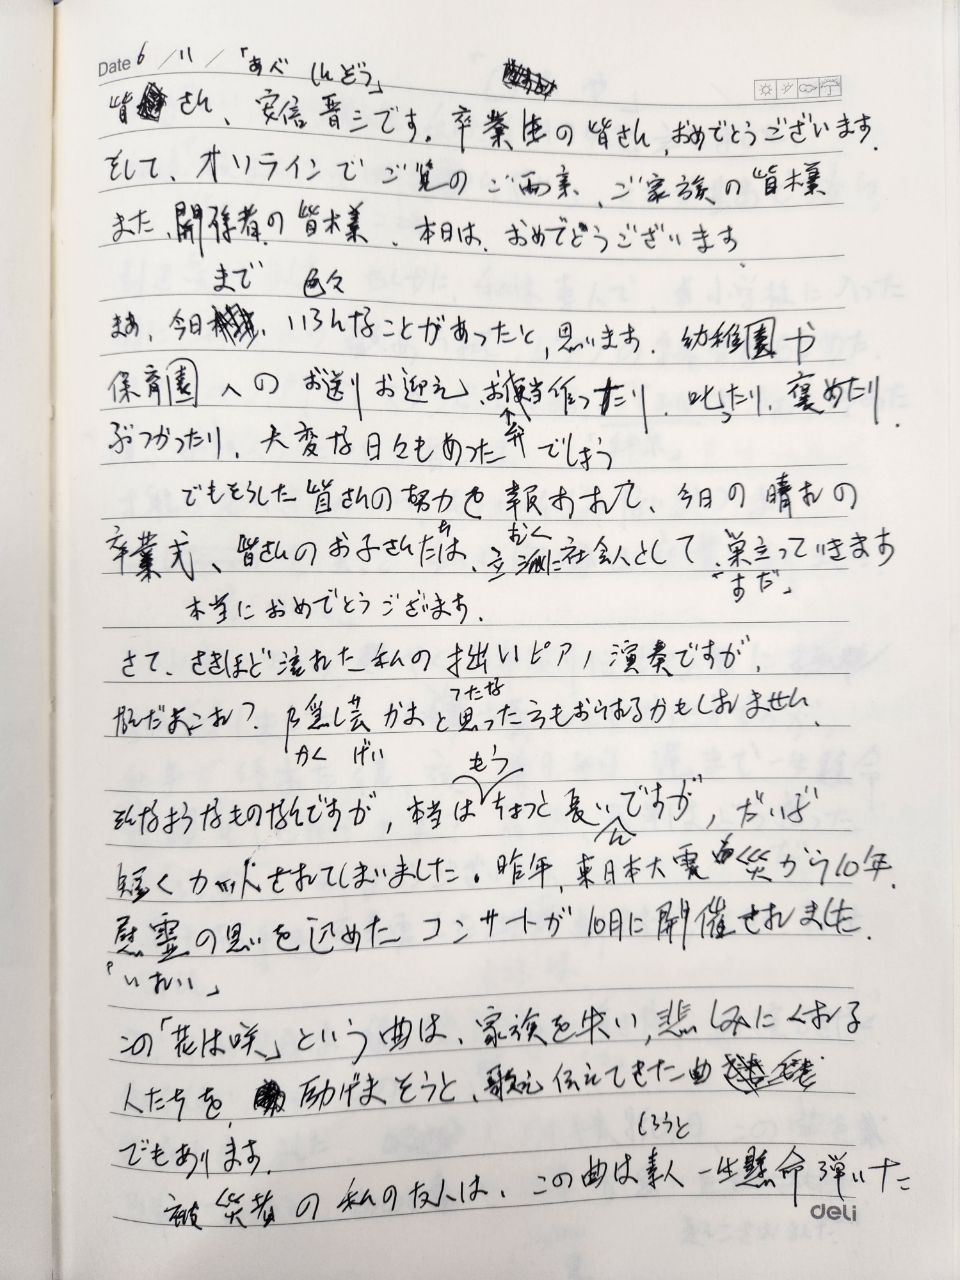 Date 6 / 11 / 「あべ しんどう」
皆さん、安信晋三です。卒業生の皆さん、おめでとうございます.
そして、オンラインでご覧のご両親、ご家族の皆様
また、関係者の皆様、本日は、おめでとうございます.
まで 色々
まあ、今日、いろんなことがあったと、思います. 幼稚園や
保育園への お送りお迎え、お弁当作ったり、叱ったり、褒めたり.
ぶつかったり、大変な日々もあった でしょう
でもそうした皆さんの努力も報われて、今日の晴れの
卒業式、皆さんのお子さんたちは、立派に社会人として、巣立っていきます
「すだ」
本当におめでとうござます.
さて、さきほど流れた私の拙いピアノ演奏ですが、
つたな
なんだよこれ? 隠し芸かよと思った方もおられるかもしれません、
かく げい
もう
そんなようなものなんですが、本当はちょっと長いんですが、だいぶ
短くカットされてしまいました。昨年、東日本大震災から10年.
慰霊の思いを込めたコンサートが10月に開催されました.
「いれい」
この「花は咲」という曲は、家族を失い、悲しみにくれる
人たちを、励げまそうと、歌え伝えてきた曲
でもあります.
しろうと
被災者の私の友人は、この曲は素人一生懸命弾いた
deli